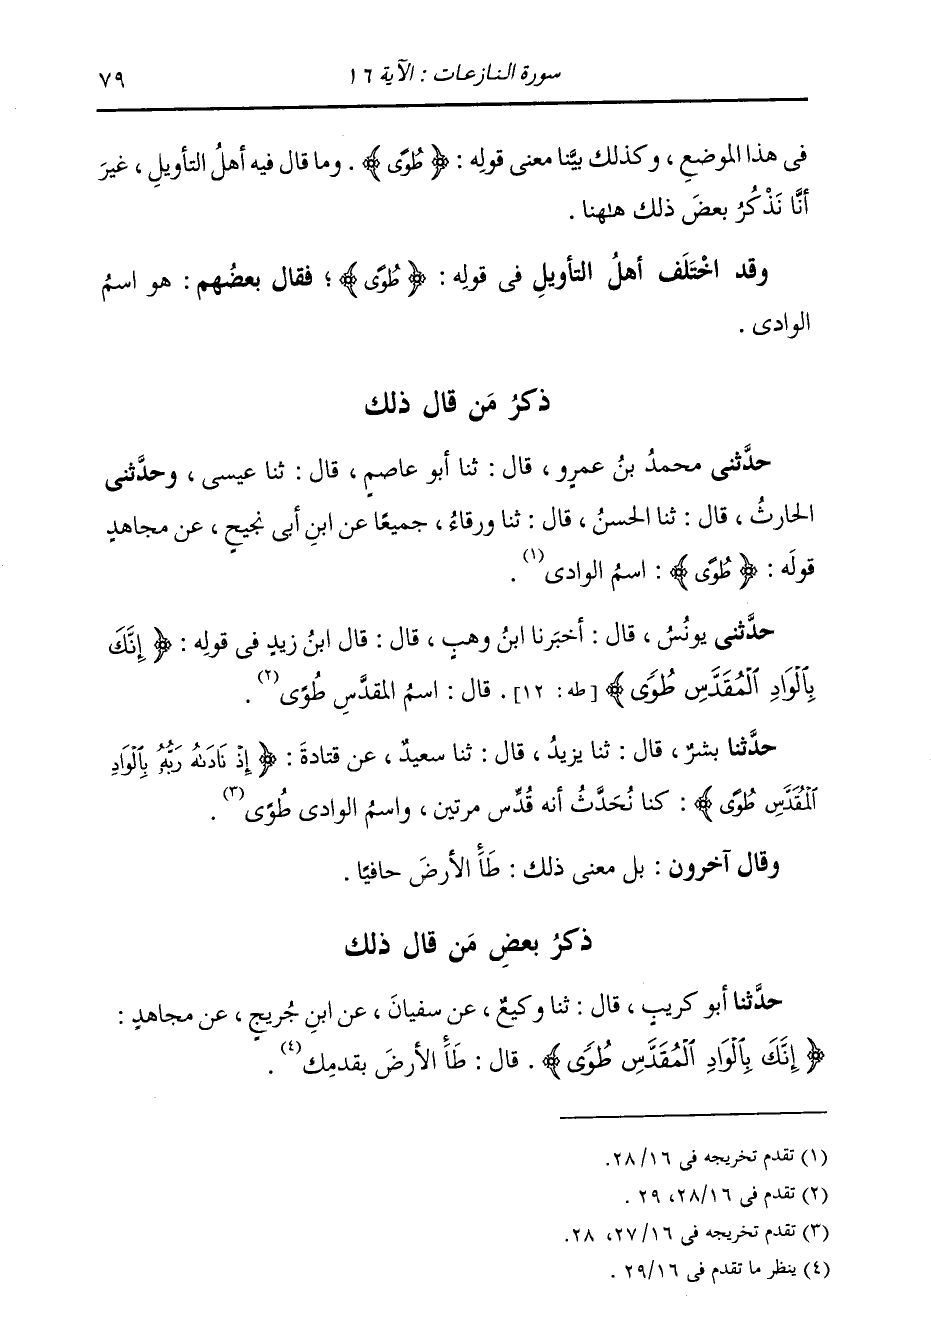 سورة النازعات : الآية ١٦
٧٩
فى هذا الموضعِ ، وكذلك بيَّنا معنى قولِه : ﴿ طُوًى ﴾ . وما قال فيه أهلُ التأويلِ ، غيرَ
أنَّا نَذْكُرُ بعضَ ذلك هلهنا .
وقد اخْتَلَف أهلُ التأويلِ فى قولِه : ﴿ طُوًى ﴾ ؛ فقال بعضُهم : هو اسمُ
الوادى .
ذكرُ مَن قال ذلك
حدَّثنى محمدُ بنُ عمرٍو ، قال : ثنا أبو عاصمٍ ، قال : ثنا عيسى ، وحدَّثنى
الحارثُ ، قال : ثنا الحسنُ ، قال : ثنا ورقاءُ ، جميعًا عن ابنِ أبى نجيحٍ ، عن مجاهدٍ
قولَه : ﴿ طُوًى ﴾ : اسمُ الوادى(١) .
حدَّثنى يونُسُ ، قال : أخبَرنا ابنُ وهبٍ ، قال : قال ابنُ زيدٍ فى قولِه : ﴿ إِنَّكَ
بِٱلْوَادِ ٱلْمُقَدَّسِ طُوًى ﴾ [ طه : ١٢] . قال : اسمُ المقدَّسِ طُوًى(٢) .
حدَّثنا بشرٌ ، قال : ثنا يزيدُ ، قال : ثنا سعيدٌ ، عن قتادةَ : ﴿ إِذْ نَادَىٰهُ رَبُّهُۥ بِٱلْوَادِ
ٱلْمُقَدَّسِ طُوًى ﴾ : كنا نُحَدَّثُ أنه قُدِّس مرتين ، واسمُ الوادى طُوًى(٣) .
وقال آخرون : بل معنى ذلك : طَأَ الأرضَ حافيًا .
ذكرُ بعضِ مَن قال ذلك
حدَّثنا أبو كريبٍ ، قال : ثنا وكيعٌ ، عن سفيانَ ، عن ابنِ جُريجٍ ، عن مجاهدٍ :
﴿ إِنَّكَ بِٱلْوَادِ ٱلْمُقَدَّسِ طُوًى ﴾ . قال : طَأَ الأرضَ بقدمِك(٤) .
(١) تقدم تخريجه فى ٢٨/١٦.
(٢) تقدم فى ٢٨/١٦، ٢٩ .
(٣) تقدم تخريجه فى ٢٧/١٦، ٢٨.
(٤) ينظر ما تقدم فى ٢٩/١٦ .